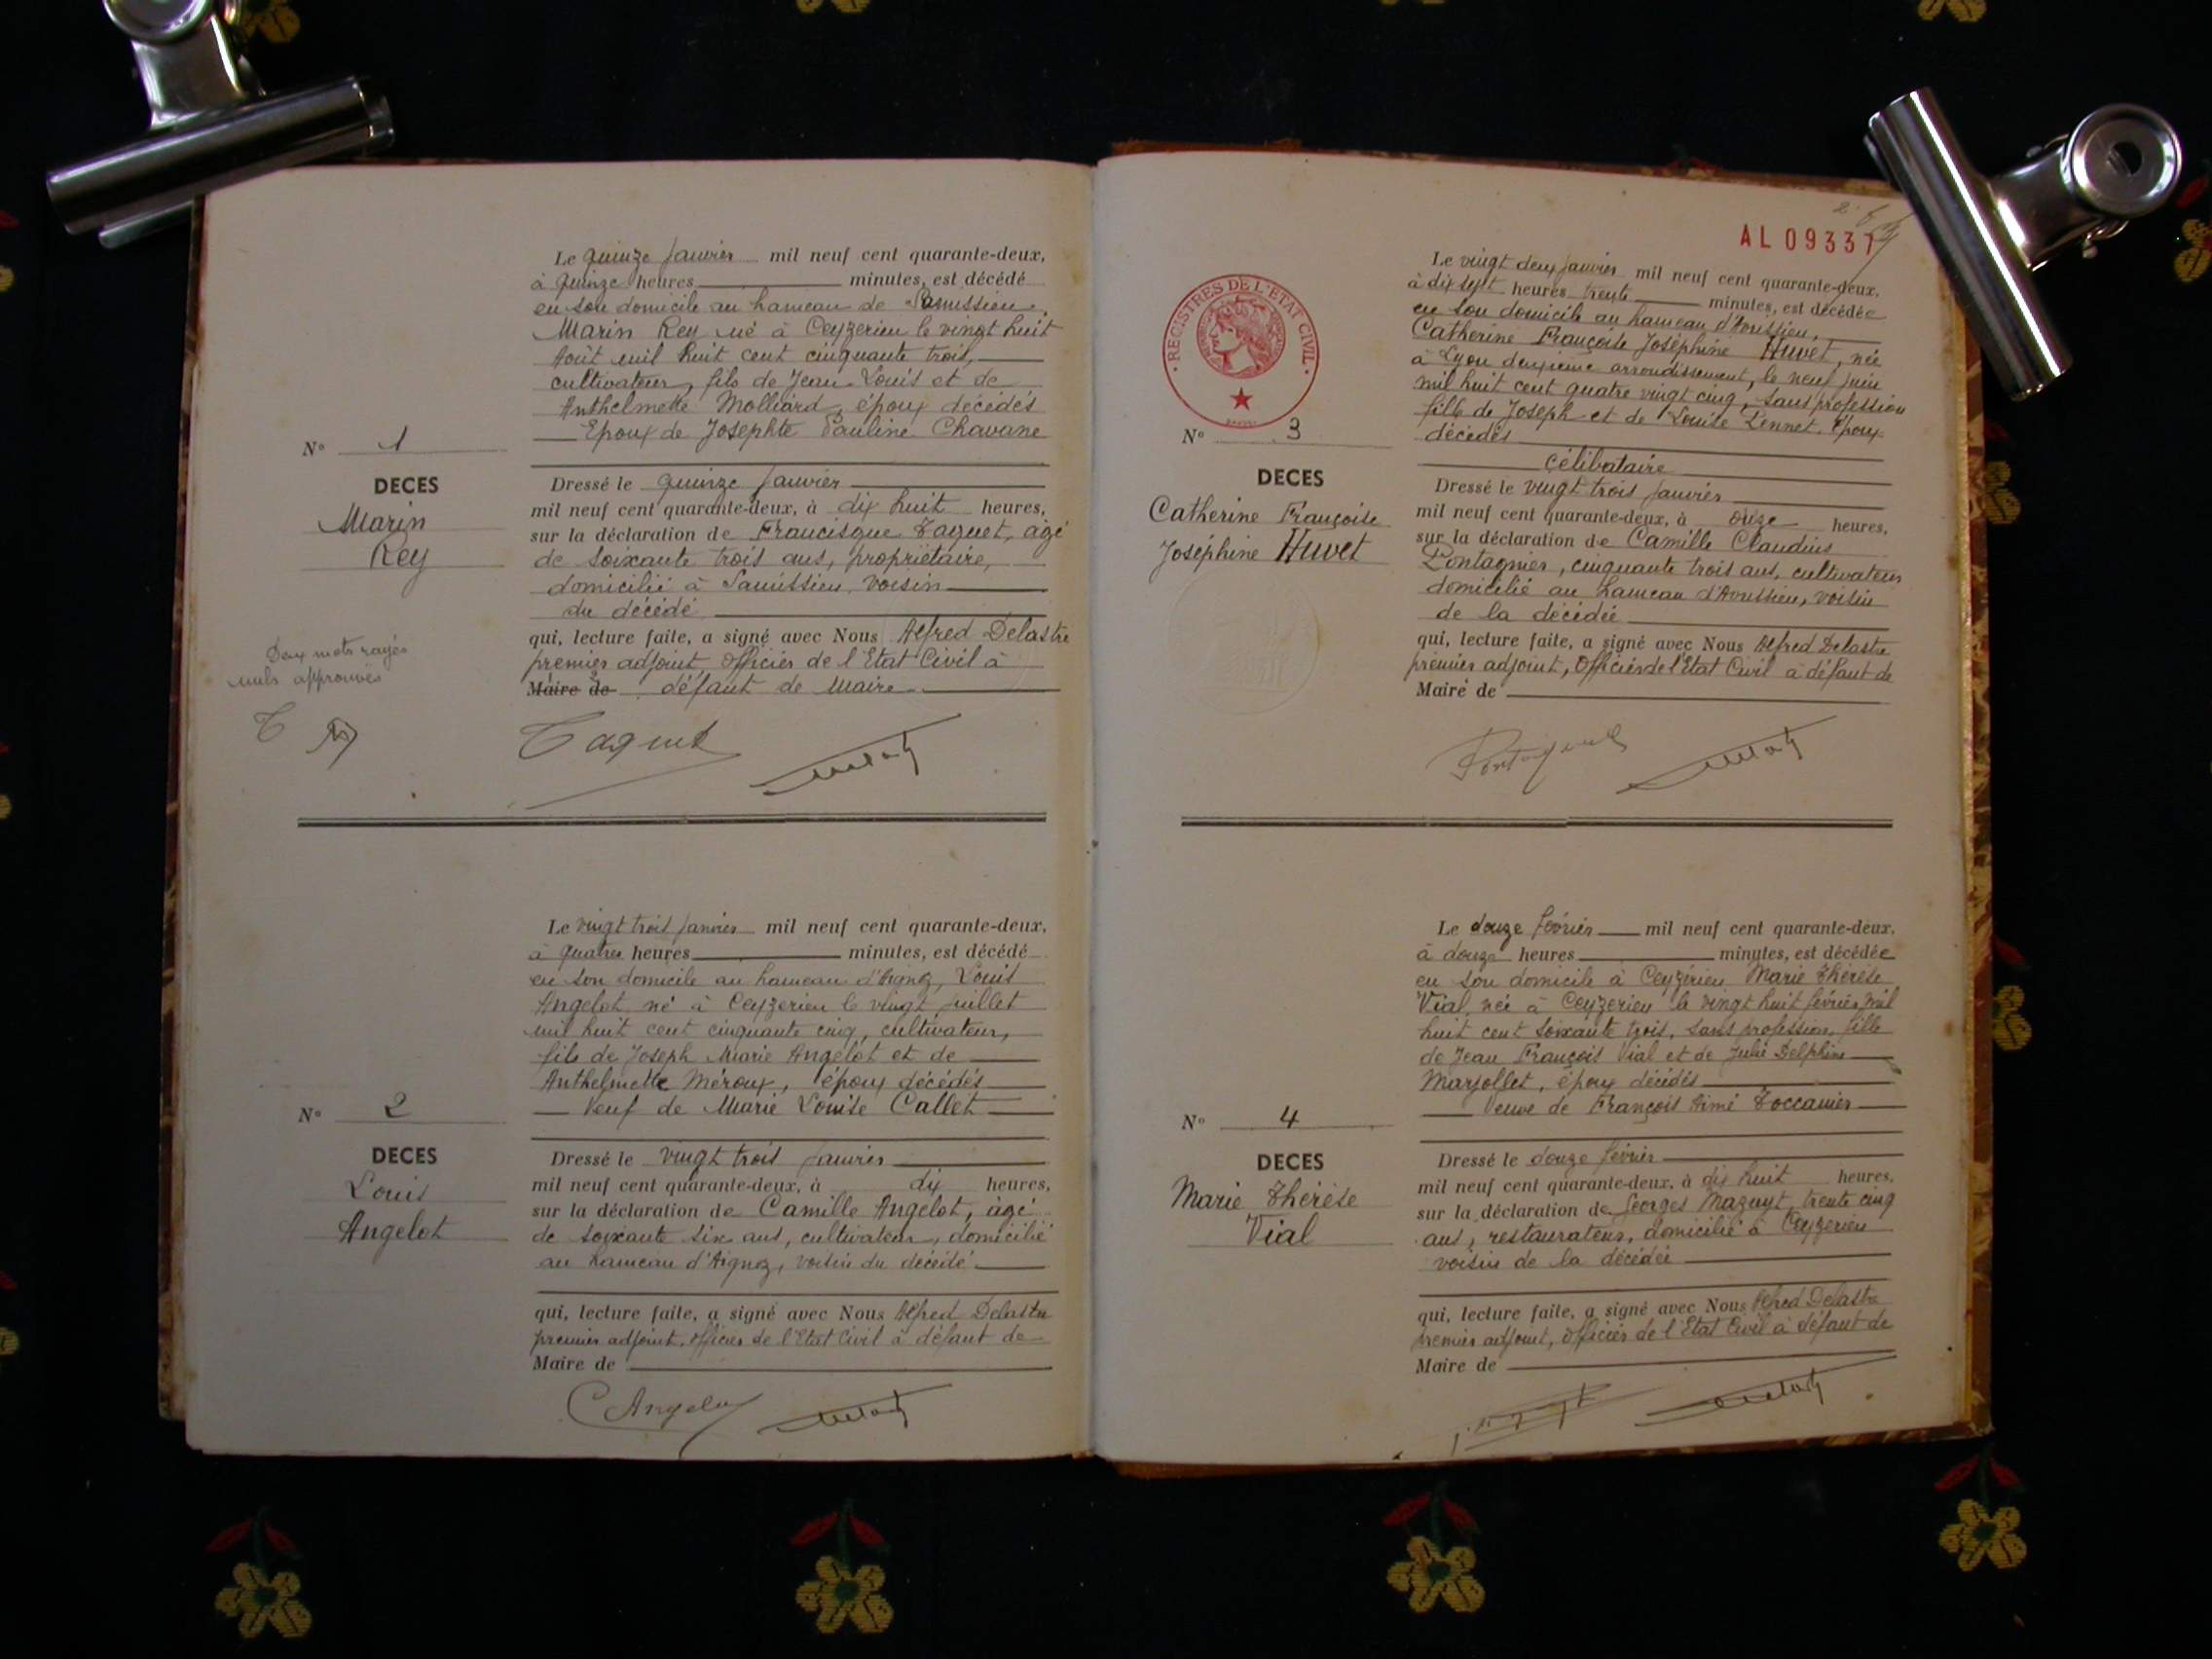 Le quinze Janvier mil neuf cent quarante-deux,
à quinze heures minutes, est décédé
en son domicile au hameau de
Marin Rey né à Ceyzerieu le vingt huit
Août mil huit cent cinquante trois,
cultivateur, fils de Jean-Louis et de
Anthelmette Molliard, époux décédés
Epoux de Josephte Pauline Chavane
N° 1
DECES
Marin
Rey
Dressé le quinze Janvier
mil neuf cent quarante-deux, à dix huit heures,
sur la déclaration de Francisque Taquet, âgé
de soixante trois ans, propriétaire,
domicilié à voisin
du décédé
qui, lecture faite, a signé avec Nous Alfred Delastre
premier adjoint, Officier de l'Etat Civil à
Maire de défaut de Maire
Deux mots rayés
nuls approuvés
Taquet
Le vingt trois Janvier mil neuf cent quarante-deux,
à quatre heures minutes, est décédé
en son domicile au hameau d'Aignoz, Louis
Angelot né à Ceyzerieu le vingt Juillet
mil huit cent cinquante cinq, cultivateur,
fils de Joseph Marie Angelot et de
Anthelmette Méroux, époux décédés
Veuf de Marie Louise Callet
N° 2
DECES
Louis
Angelot
Dressé le vingt trois Janvier
mil neuf cent quarante-deux, à dix heures,
sur la déclaration de Camille Angelot, âgé
de soixante six ans, cultivateur, domicilié
au hameau d'Aignoz, voisin du décédé
qui, lecture faite, a signé avec Nous Alfred Delastre
premier adjoint, Officier de l'Etat Civil à défaut de
Maire de
C Angelot
AL 09337
REGISTRES DE L'ETAT CIVIL
Le vingt deux Janvier mil neuf cent quarante-deux,
à dix sept heures trente minutes, est décédée
en son domicile au hameau d'Avrissieu,
Catherine Françoise Joséphine Huvet, née
à Lyon deuxième arrondissement, le neuf Juin
mil huit cent quatre vingt cinq, sans profession
fille de Joseph et de Louise époux
décédés
célibataire
N° 3
DECES
Catherine Françoise
Joséphine Huvet
Dressé le vingt trois Janvier
mil neuf cent quarante-deux, à onze heures,
sur la déclaration de Camille Claudius
Pontagnier, cinquante trois ans, cultivateur
domicilié au hameau d'Avrissieu, voisin
de la décédée
qui, lecture faite, a signé avec Nous Alfred Delastre
premier adjoint, Officier de l'Etat Civil à défaut de
Maire de
Le douze février mil neuf cent quarante-deux,
à douze heures minutes, est décédée
en son domicile à Ceyzérieu Marie Thérèse
Vial, née à Ceyzerieu le vingt huit février mil
huit cent soixante trois, sans profession, fille
de Jean François Vial et de Julie Delphine
Marjollet, époux décédés
Veuve de François Aimé Toccanier
N° 4
DECES
Marie Thérèse
Vial
Dressé le douze février
mil neuf cent quarante-deux, à dix huit heures,
sur la déclaration de Georges Mazuyt, trente cinq
ans, restaurateur, domicilié à Ceyzerieu
voisin de la décédée
qui, lecture faite, a signé avec Nous Alfred Delastre
premier adjoint, Officier de l'Etat Civil à défaut de
Maire de